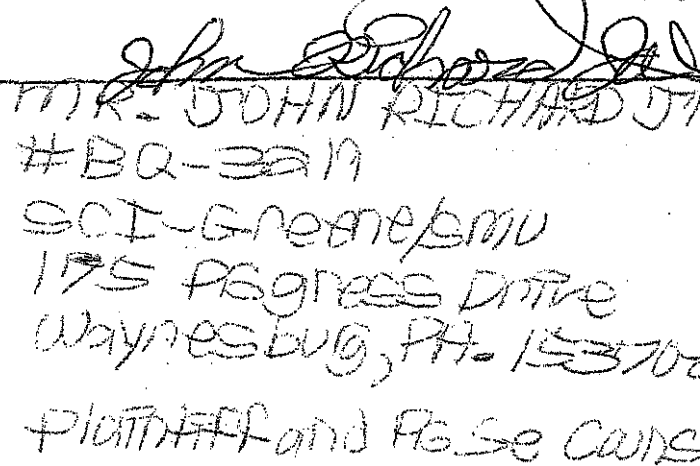 John Richard
MR. JOHN RICHARD
#BQ-3219
SCI-Greene/SMU
175 PGgress Drive
Waynesbug, PA. 15370
Plaintiff and Po Se Couns